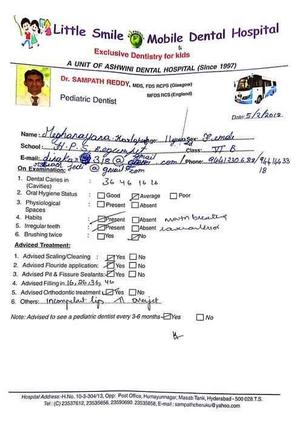 Little Smile Mobile Dental Hospital
&
Exclusive Dentistry for kids
A UNIT OF ASHWINI DENTAL HOSPITAL (Since 1997)
Dr. SAMPATH REDDY, MDS, FDS RCPS (Glasgow)
MFDS RCS (England)
Pediatric Dentist
Date: 5/2/2018
Name: Meghanayana
School: H.P.S Class: VI B
E-mail: Phone:
On Examination:
1. Dental Caries in (Cavities) 36 46 16 26
2. Oral Hygiene Status : Good Average Poor
3. Physiological Spaces : Present Absent
4. Habits : Present Absent mouth breathing
5. Irregular teeth : Present Absent
6. Brushing twice : Yes No
Adviced Treatment:
1. Advised Scaling/Cleaning : Yes No
2. Advised Flouride application: Yes No
3. Advised Pit & Fissure Sealants: Yes No
4. Advised Filling in 16, 26, 36, 46
5. Advised Orthodontic treatment : Yes No
6. Others: Incompetent lip, overjet
Note: Advised to see a pediatric dentist every 3-6 months Yes No
Hospital Address:-H.No. 10-3-304/13, Opp: Post Office, Humayunnagar, Masab Tank, Hyderabad - 500 028 T.S.
Tel: (C) 23537612, 23535656, 23590690, 23535858, E-Mail: sampathcheruku@yahoo.com